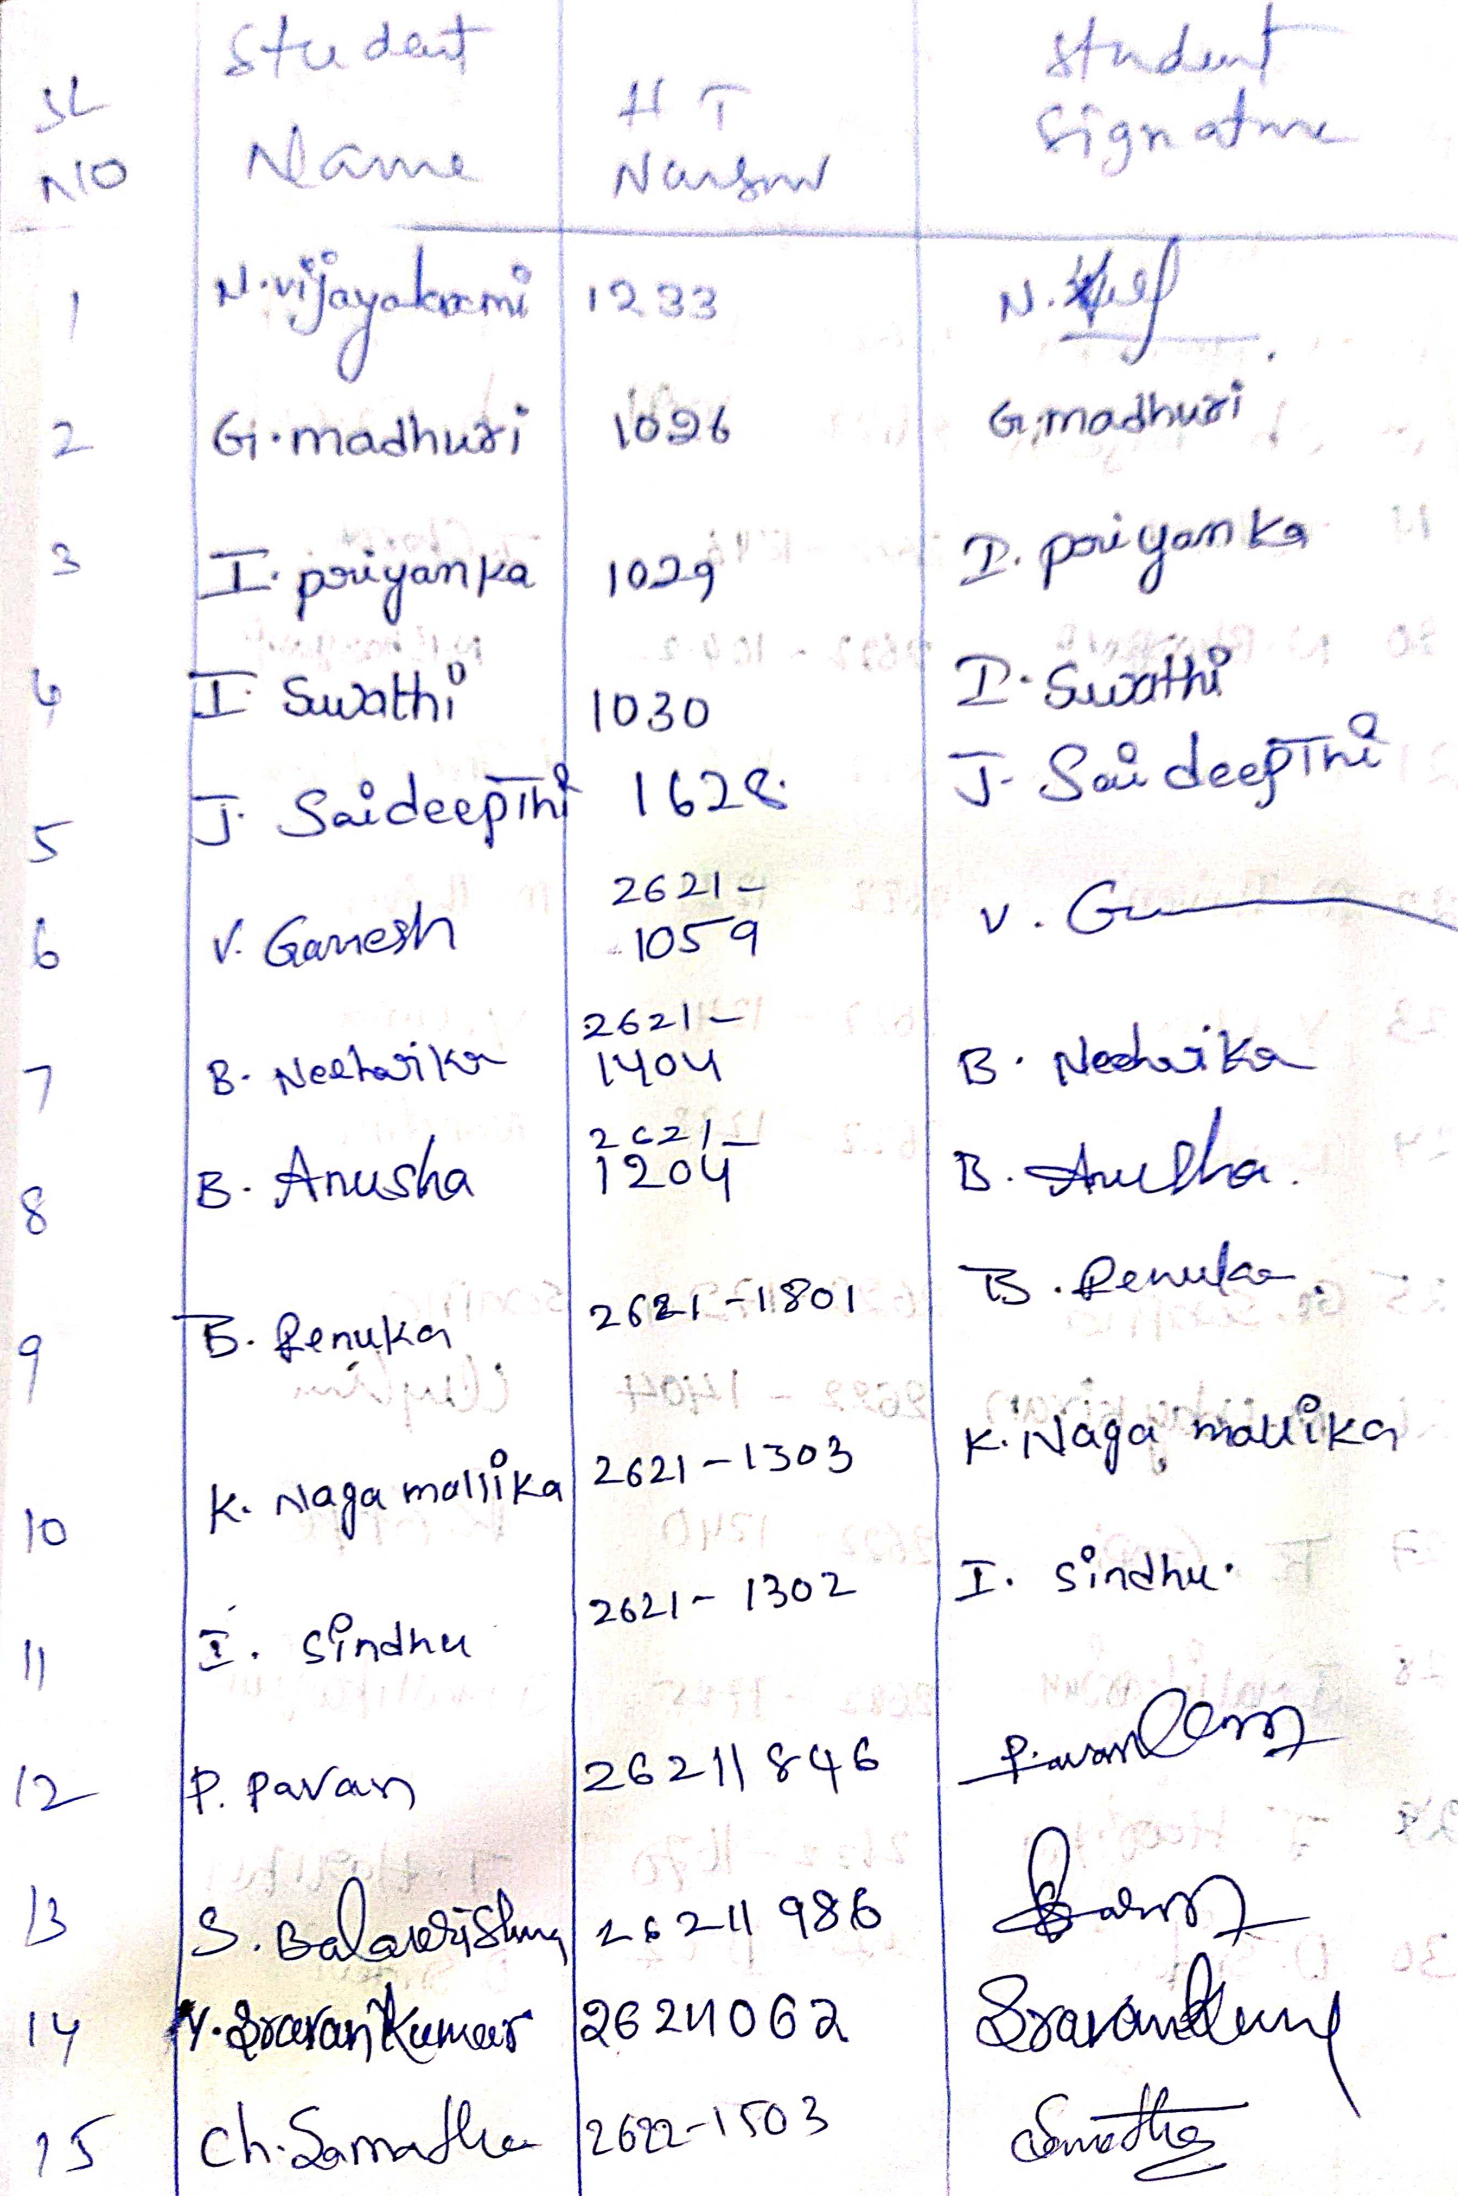 SL NO Student Name H T Number Student Signature
1 N. vijayalaxmi 1233 N.
2 G. madhuri 1026 G. madhuri
3 I. priyanka 1029 I. priyanka
4 I. Swathi 1030 I. Swathi
5 J. Saideepthi 1628 J. Saideepthi
6 V. Ganesh 2621-1059 V. G
7 B. Neeharika 2621-1404 B. Neeharika
8 B. Anusha 2621-1204 B. Anusha.
9 B. Renuka 2621-1801 B. Renuka.
10 K. Naga mallika 2621-1303 K. Naga mallika
11 I. Sindhu 2621-1302 I. Sindhu.
12 P. Pavan 26211846 P.
13 S. Balakrishna 26211986
14 Y. Sravan Kumar 26211062 Sravan
15 Ch. Samatha 2622-1503 Samatha